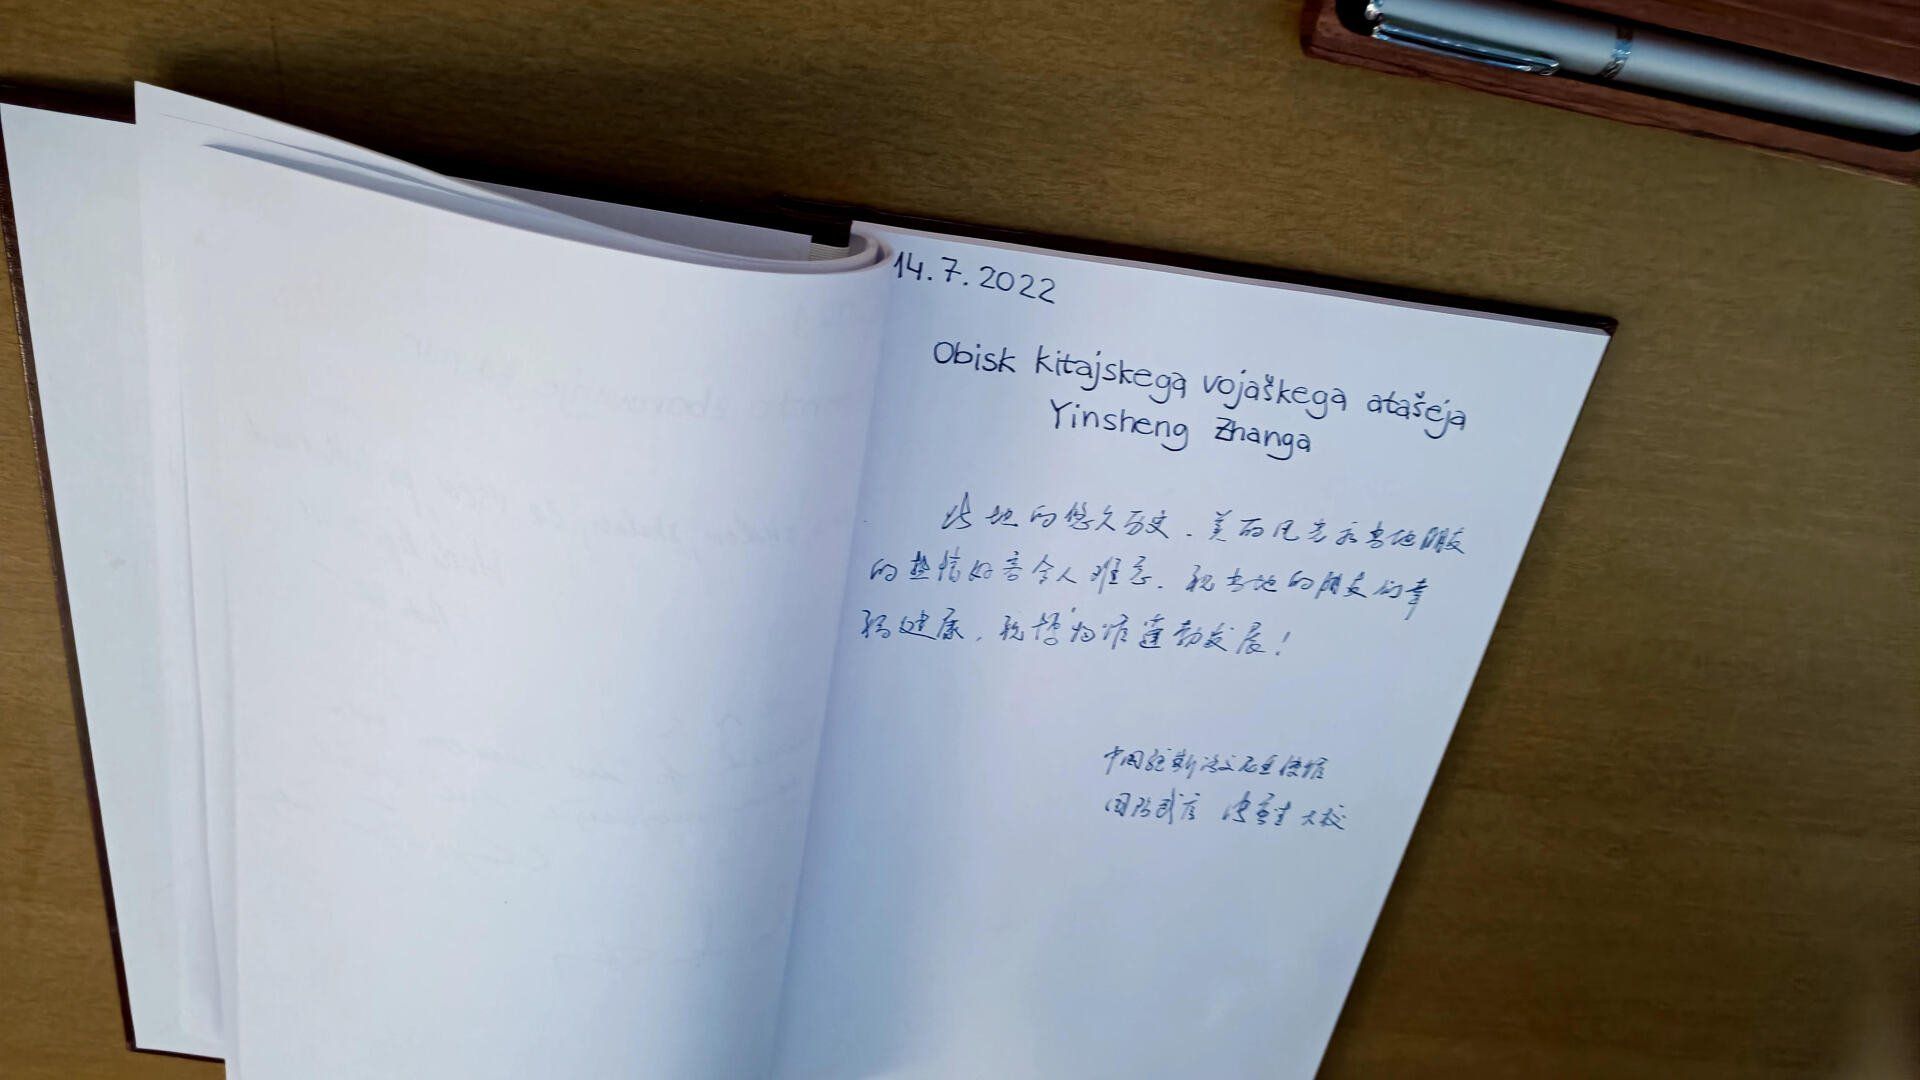 14.7.2022
Obisk kitajskega vojaškega atašeja
Yinsheng Zhanga
此地的悠久历史、美丽风光和当地朋友
的热情好客令人难忘。祝当地的朋友们幸
福健康，祝博物馆蓬勃发展！
中国驻斯洛文尼亚使馆
国防武官 大校